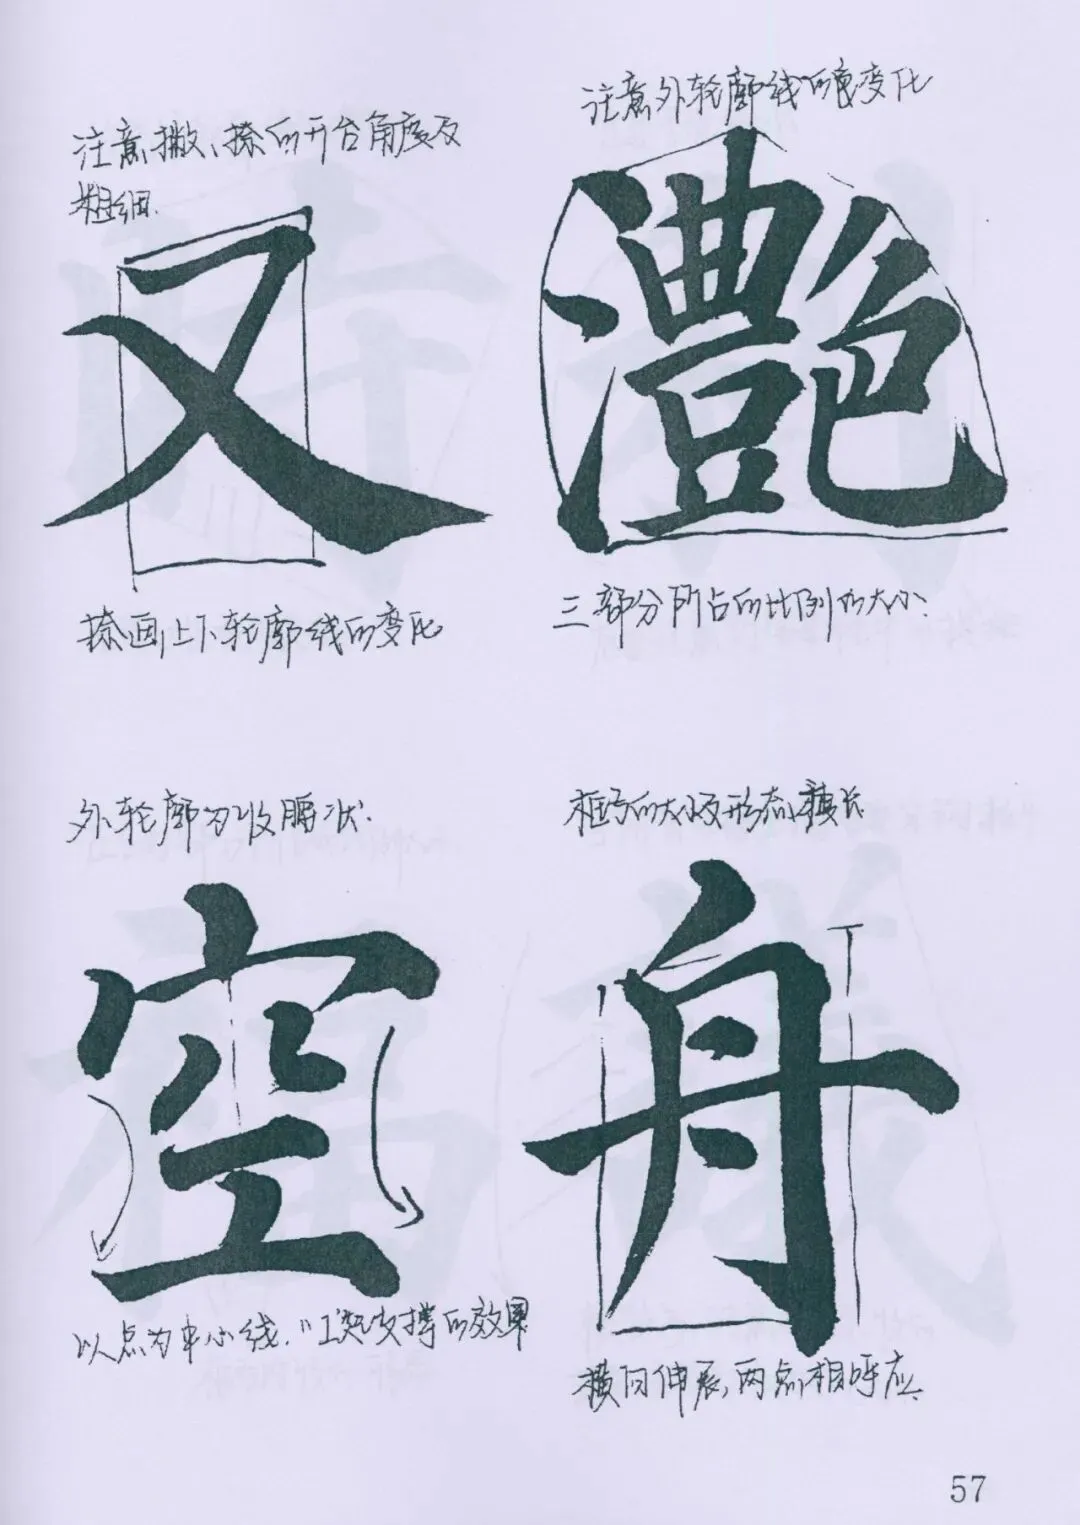 注意撇、捺的开合角度及
粗细.
又
捺画上下轮廓线的变化
注意外轮廓线的变化
灔
三部分所占的比例的大小.
外轮廓为收腰状.
空
以点为中心线. "工"起支撑的效果
框的大小及形态,整长
舟
横向伸展,两点相呼应.
57